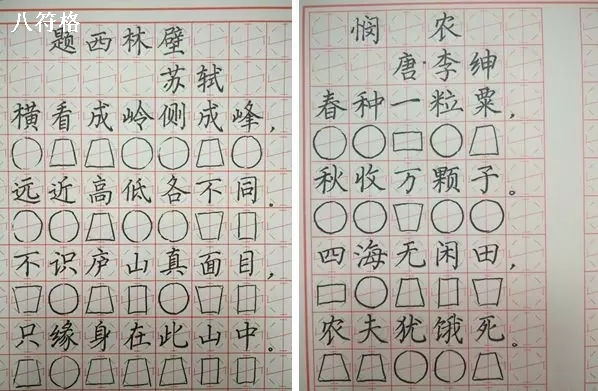 八符格
题西林壁
苏轼
横看成岭侧成峰，
远近高低各不同。
不识庐山真面目，
只缘身在此山中。
悯农
唐·李绅
春种一粒粟，
秋收万颗子。
四海无闲田，
农夫犹饿死。